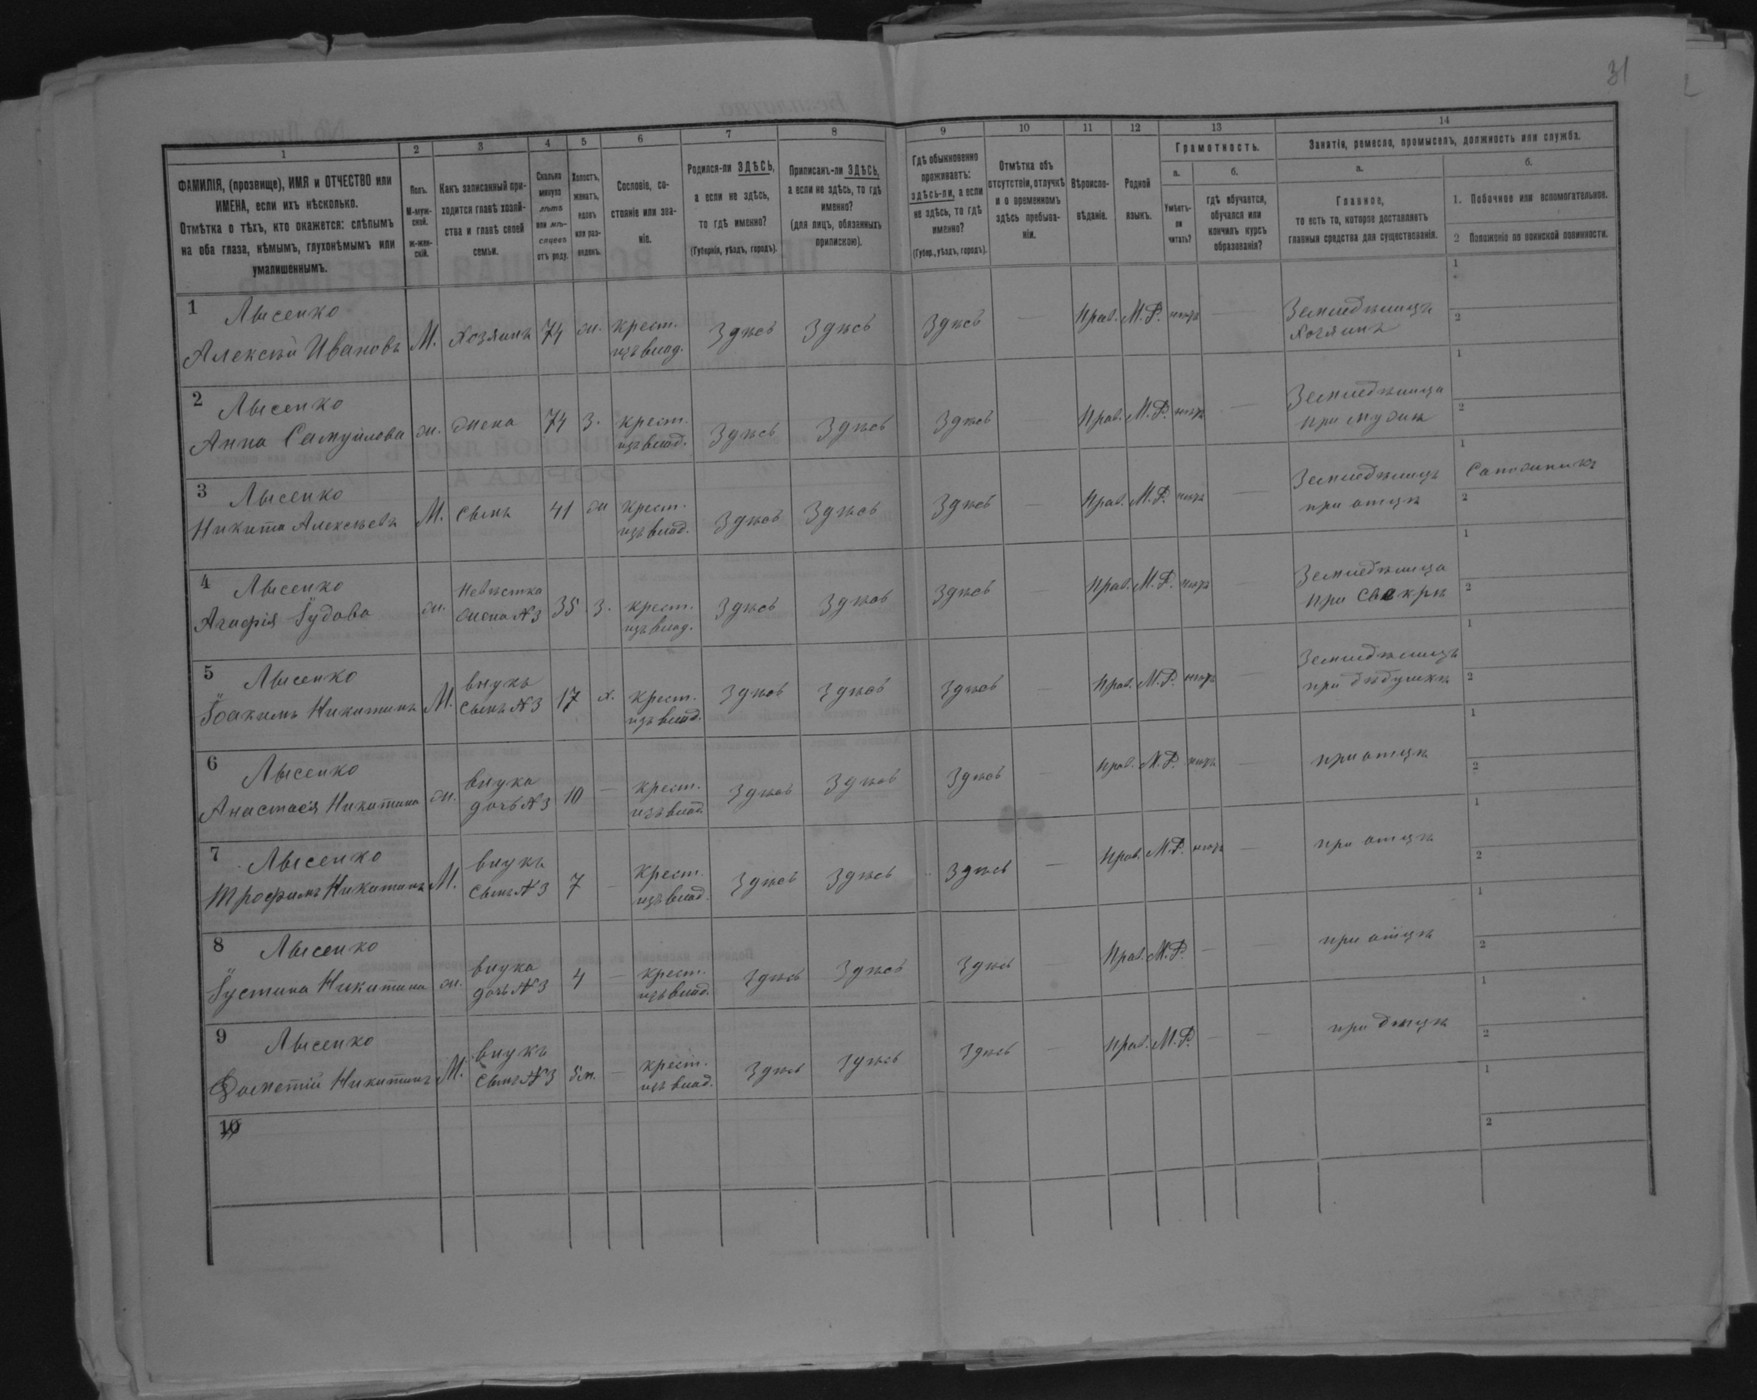 31
1 2 3 4 5 6 7 8 9 10 11 12 13 14
ФАМИЛІЯ, (прозвище), ИМЯ и ОТЧЕСТВО или
ИМЕНА, если ихъ нѣсколько.
Отмѣтка о тѣхъ, кто окажется: слѣпымъ
на оба глаза, нѣмымъ, глухонѣмымъ или
умалишеннымъ.
Полъ.
М-муж-
ской.
ж-жен-
скій.
Какъ записанный при-
ходится главѣ хозяй-
ства и главѣ своей
семьи.
Сколько
минуло
лѣтъ
или мѣ-
сяцевъ
отъ роду.
Холостъ,
женатъ,
вдовъ
или раз-
веденъ.
Сословіе, со-
стояніе или зва-
ніе.
Родился-ли ЗДѢСЬ,
а если не здѣсь,
то гдѣ именно?
(Губернія, уѣздъ, городъ).
Приписанъ-ли ЗДѢСЬ,
а если не здѣсь, то гдѣ
именно?
(для лицъ, обязанныхъ
припискою).
Гдѣ обыкновенно
проживаетъ:
здѣсь-ли, а если
не здѣсь, то гдѣ
именно?
(Губер., уѣздъ, городъ).
Отмѣтка объ
отсутствіи, отлучкѣ
и о временномъ
здѣсь пребыва-
ніи.
Вѣроиспо-
вѣданіе.
Родной
языкъ.
Грамотность.
а.
Умѣетъ-
ли
читать?
б.
гдѣ обучается,
обучался или
кончилъ курсъ
образованія?
Занятіе, ремесло, промыселъ, должность или служба.
а.
Главное,
то есть то, которое доставляетъ
главныя средства для существованія.
б.
1. Побочное или вспомогательное.
2 Положеніе по воинской повинности.
1 Лысенко
Алексѣй Ивановъ М. Хозяинъ 74 ж. крест. изъ влад. Здѣсь Здѣсь Здѣсь — Прав. М.Р. нѣтъ — Земледѣлецъ Хозяинъ 1 2
2 Лысенко
Анна Самуйлова ж. жена 74 з. крест. изъ влад. Здѣсь Здѣсь Здѣсь Прав. М.Р. нѣтъ — Земледѣлица при мужѣ 1 2
3 Лысенко
Никита Алексѣевъ М. сынъ 41 ж крест. изъ влад. Здѣсь Здѣсь Здѣсь — Прав. М.Р. нѣтъ — Земледѣлецъ при отцѣ 1 Сапожникъ 2
4 Лысенко
Агафія Іудова ж. Невѣстка жена №3 35 з. крест. изъ влад. Здѣсь Здѣсь Здѣсь Прав. М.Р. нѣтъ — Земледѣлица при свекрѣ 1 2
5 Лысенко
Іоакимъ Никитинъ М. внукъ сынъ №3 17 х. крест. изъ влад. Здѣсь Здѣсь Здѣсь — Прав. М.Р. нѣтъ — Земледѣлецъ при дѣдушкѣ 1 2
6 Лысенко
Анастасія Никитина ж. внука дочь №3 10 — крест. изъ влад. Здѣсь Здѣсь Здѣсь — Прав. М.Р. нѣтъ — при отцѣ 1 2
7 Лысенко
Трофимъ Никитинъ М. внукъ сынъ №3 7 — крест. изъ влад. Здѣсь Здѣсь Здѣсь — Прав. М.Р. нѣтъ — при отцѣ 1 2
8 Лысенко
Іустина Никитина ж. внука дочь №3 4 — крест. изъ влад. Здѣсь Здѣсь Здѣсь — Прав. М.Р. — — при отцѣ 1 2
9 Лысенко
Никитинъ М. внукъ сынъ №3 — крест. изъ влад. Здѣсь Здѣсь Здѣсь — Прав. М.Р. — — при 1 2
10 1 2